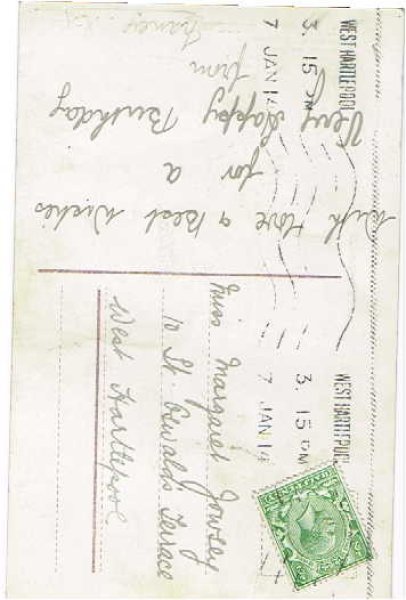 WEST HARTLEPOOL
3. 15 PM
7 JAN 14
WEST HARTLEPOOL
3. 15 PM
7 JAN 14
With Love & Best Wishes
for a
Very Happy Birthday
from
Miss Margaret Jowsey
10 St. Oswalds Terrace
West Hartlepool